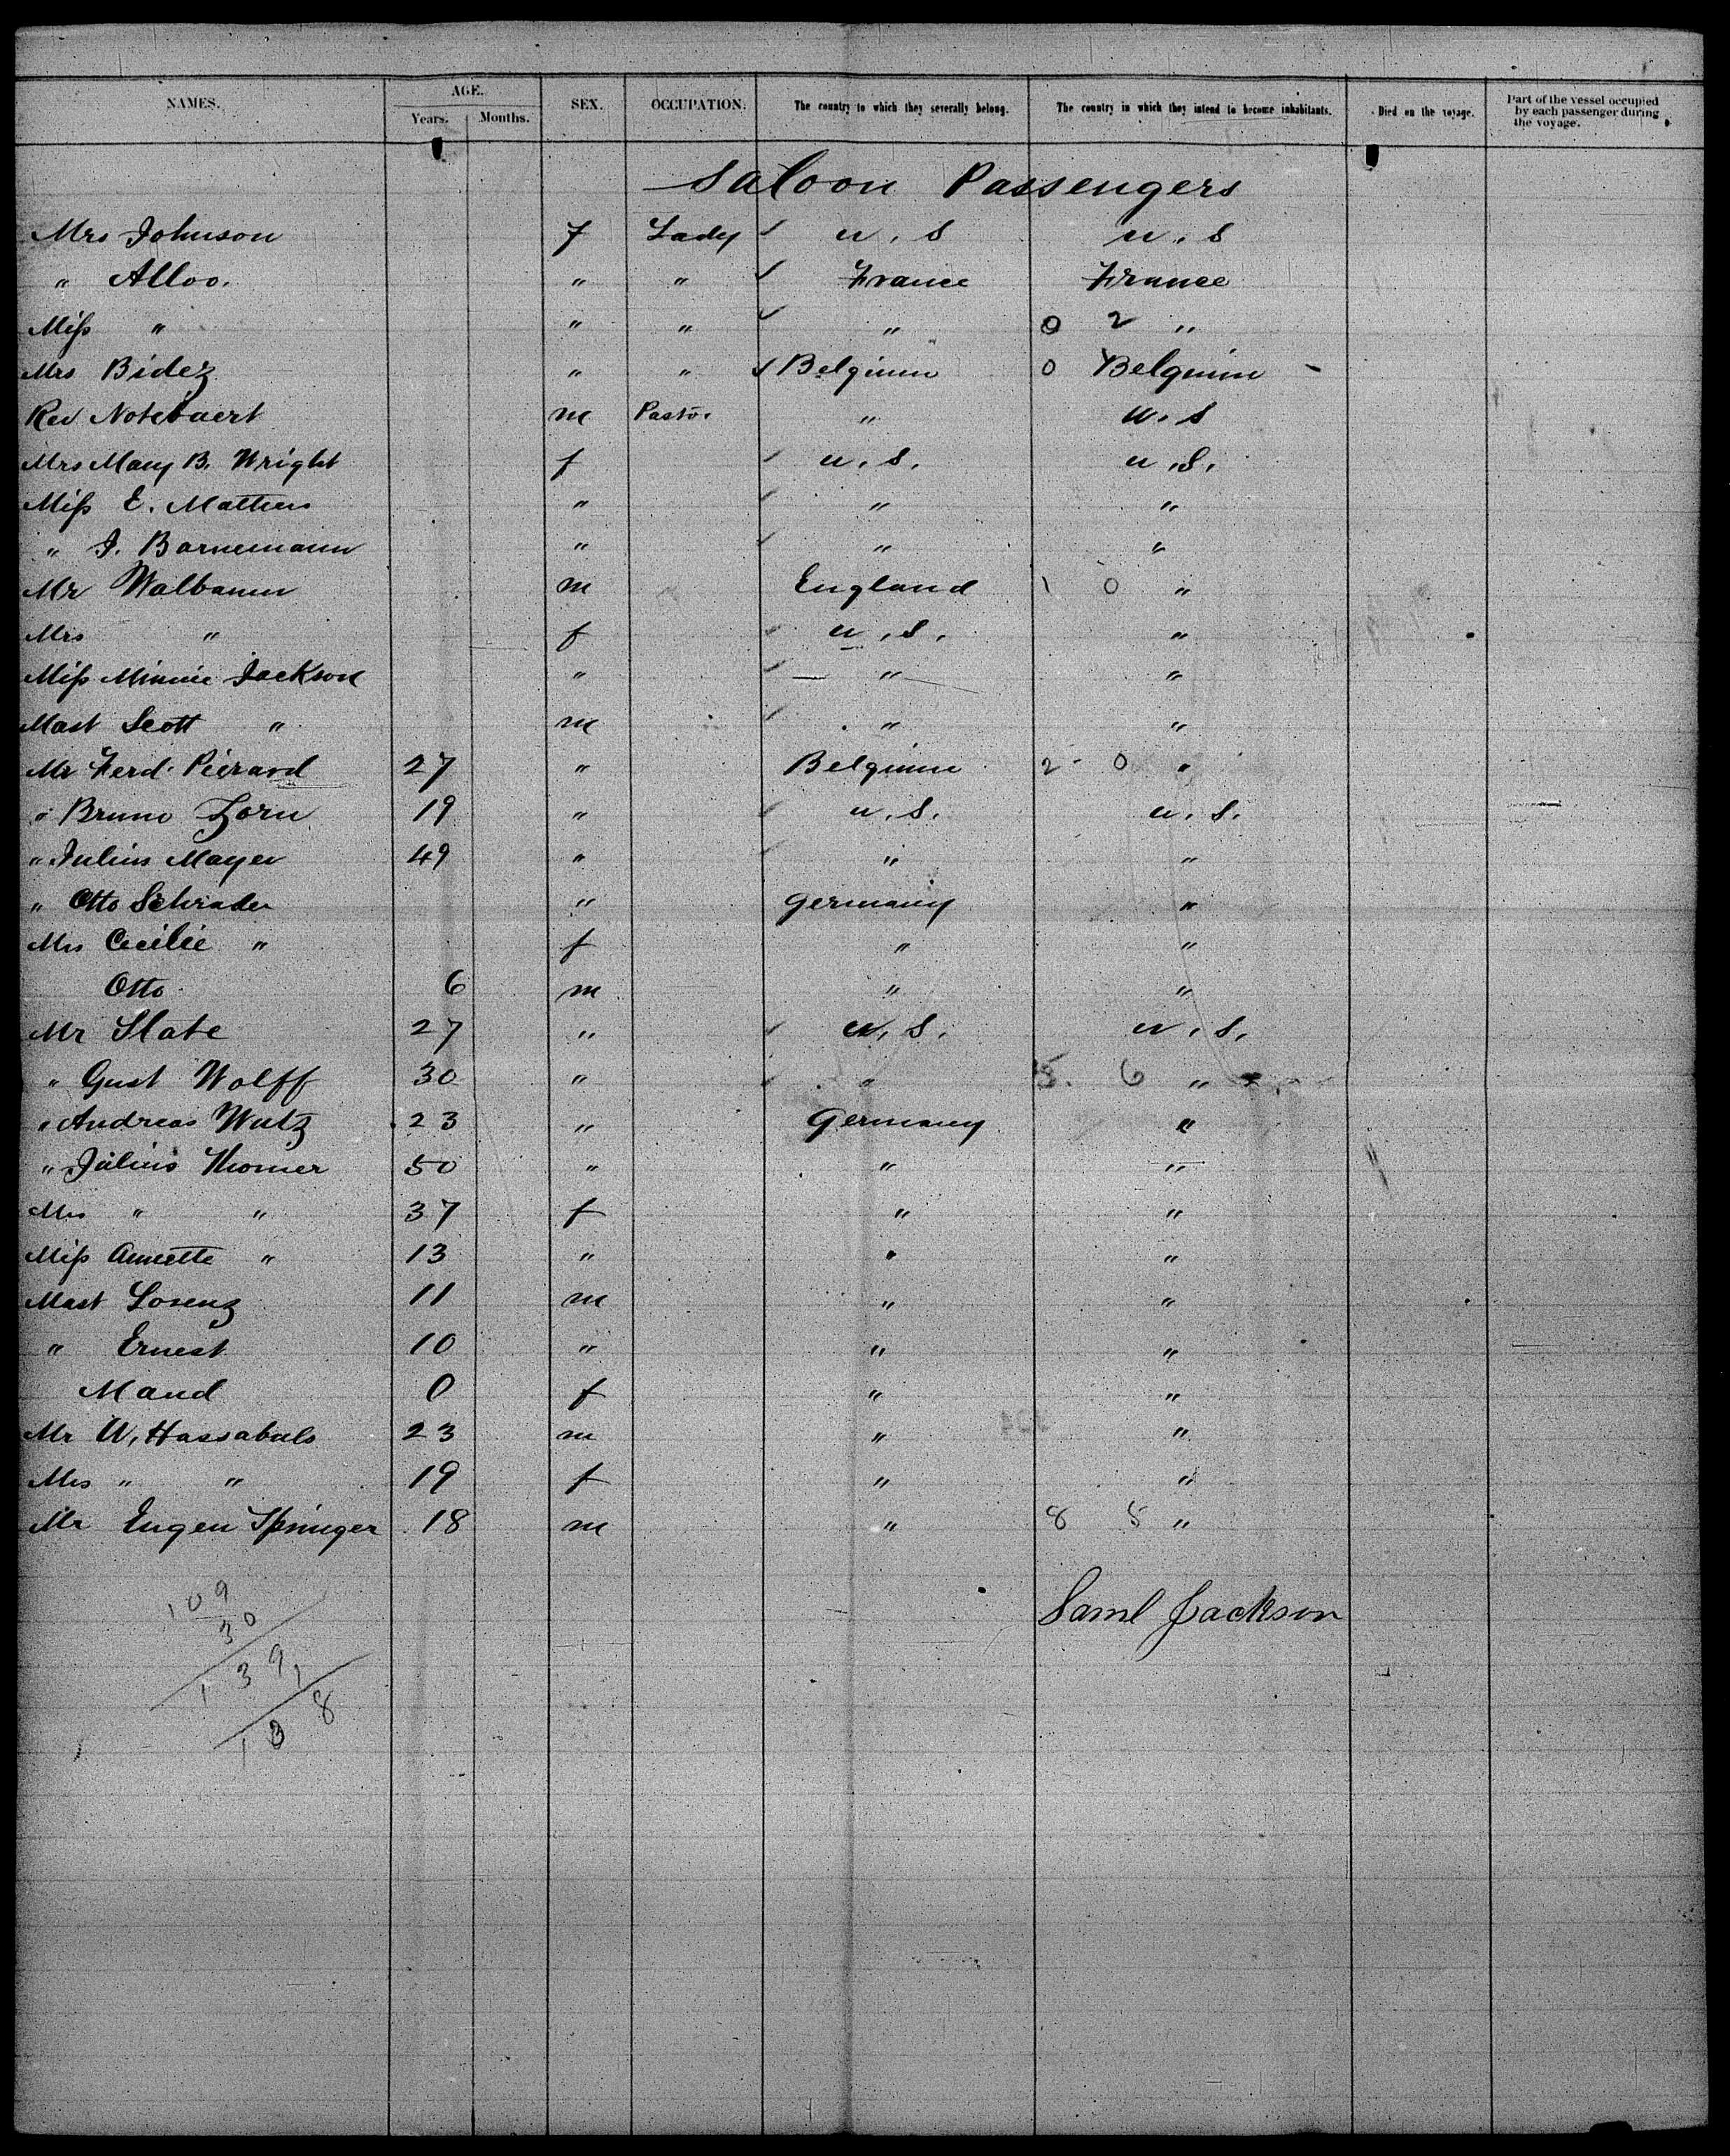 NAMES. AGE. Years. Months. SEX. OCCUPATION. The country to which they severally belong. The country in which they intend to become inhabitants. Died on the voyage. Part of the vessel occupied by each passenger during the voyage.
Saloon Passengers
Mrs Johnson f Lady u. S u. S
" Alloo. " " France France
Miss " " " " 0 2 "
Mrs Bidez " " Belgium 0 Belgium
Rev Notebaert m Pastor " u. S
Mrs Mary B. Wright f u. S. u. S.
Miss E. Mathews " " "
" J. Bornemann " " "
Mr Walbaum m England 1 0 "
Mrs " f u. S. "
Miss Minnie Jackson " " "
Mast Scott " m " "
Mr Ferd. Pierard 27 " Belgium 2 0 "
" Bruno Zorn 19 " u. S. u. S.
" Julius Mayer 49 " " "
" Otto Schrader " Germany "
Mrs Cecilie " f " "
Otto 6 m " "
Mr Slate 27 " u. S. u. S.
" Gust Wolff 30 " " 5. 6 "
" Andreas Wutz 23 " Germany "
" Julius Thomer 50 " " "
Mrs " " 37 f " "
Miss Annette " 13 " " "
Mast Lorenz 11 m " "
" Ernest 10 " " "
Maud 0 f " "
Mr W. Hassabals 23 m " "
Mrs " " 19 f " "
Mr Eugen Springer 18 m " 8 8 "
Saml Jackson
109
30
139
1
138